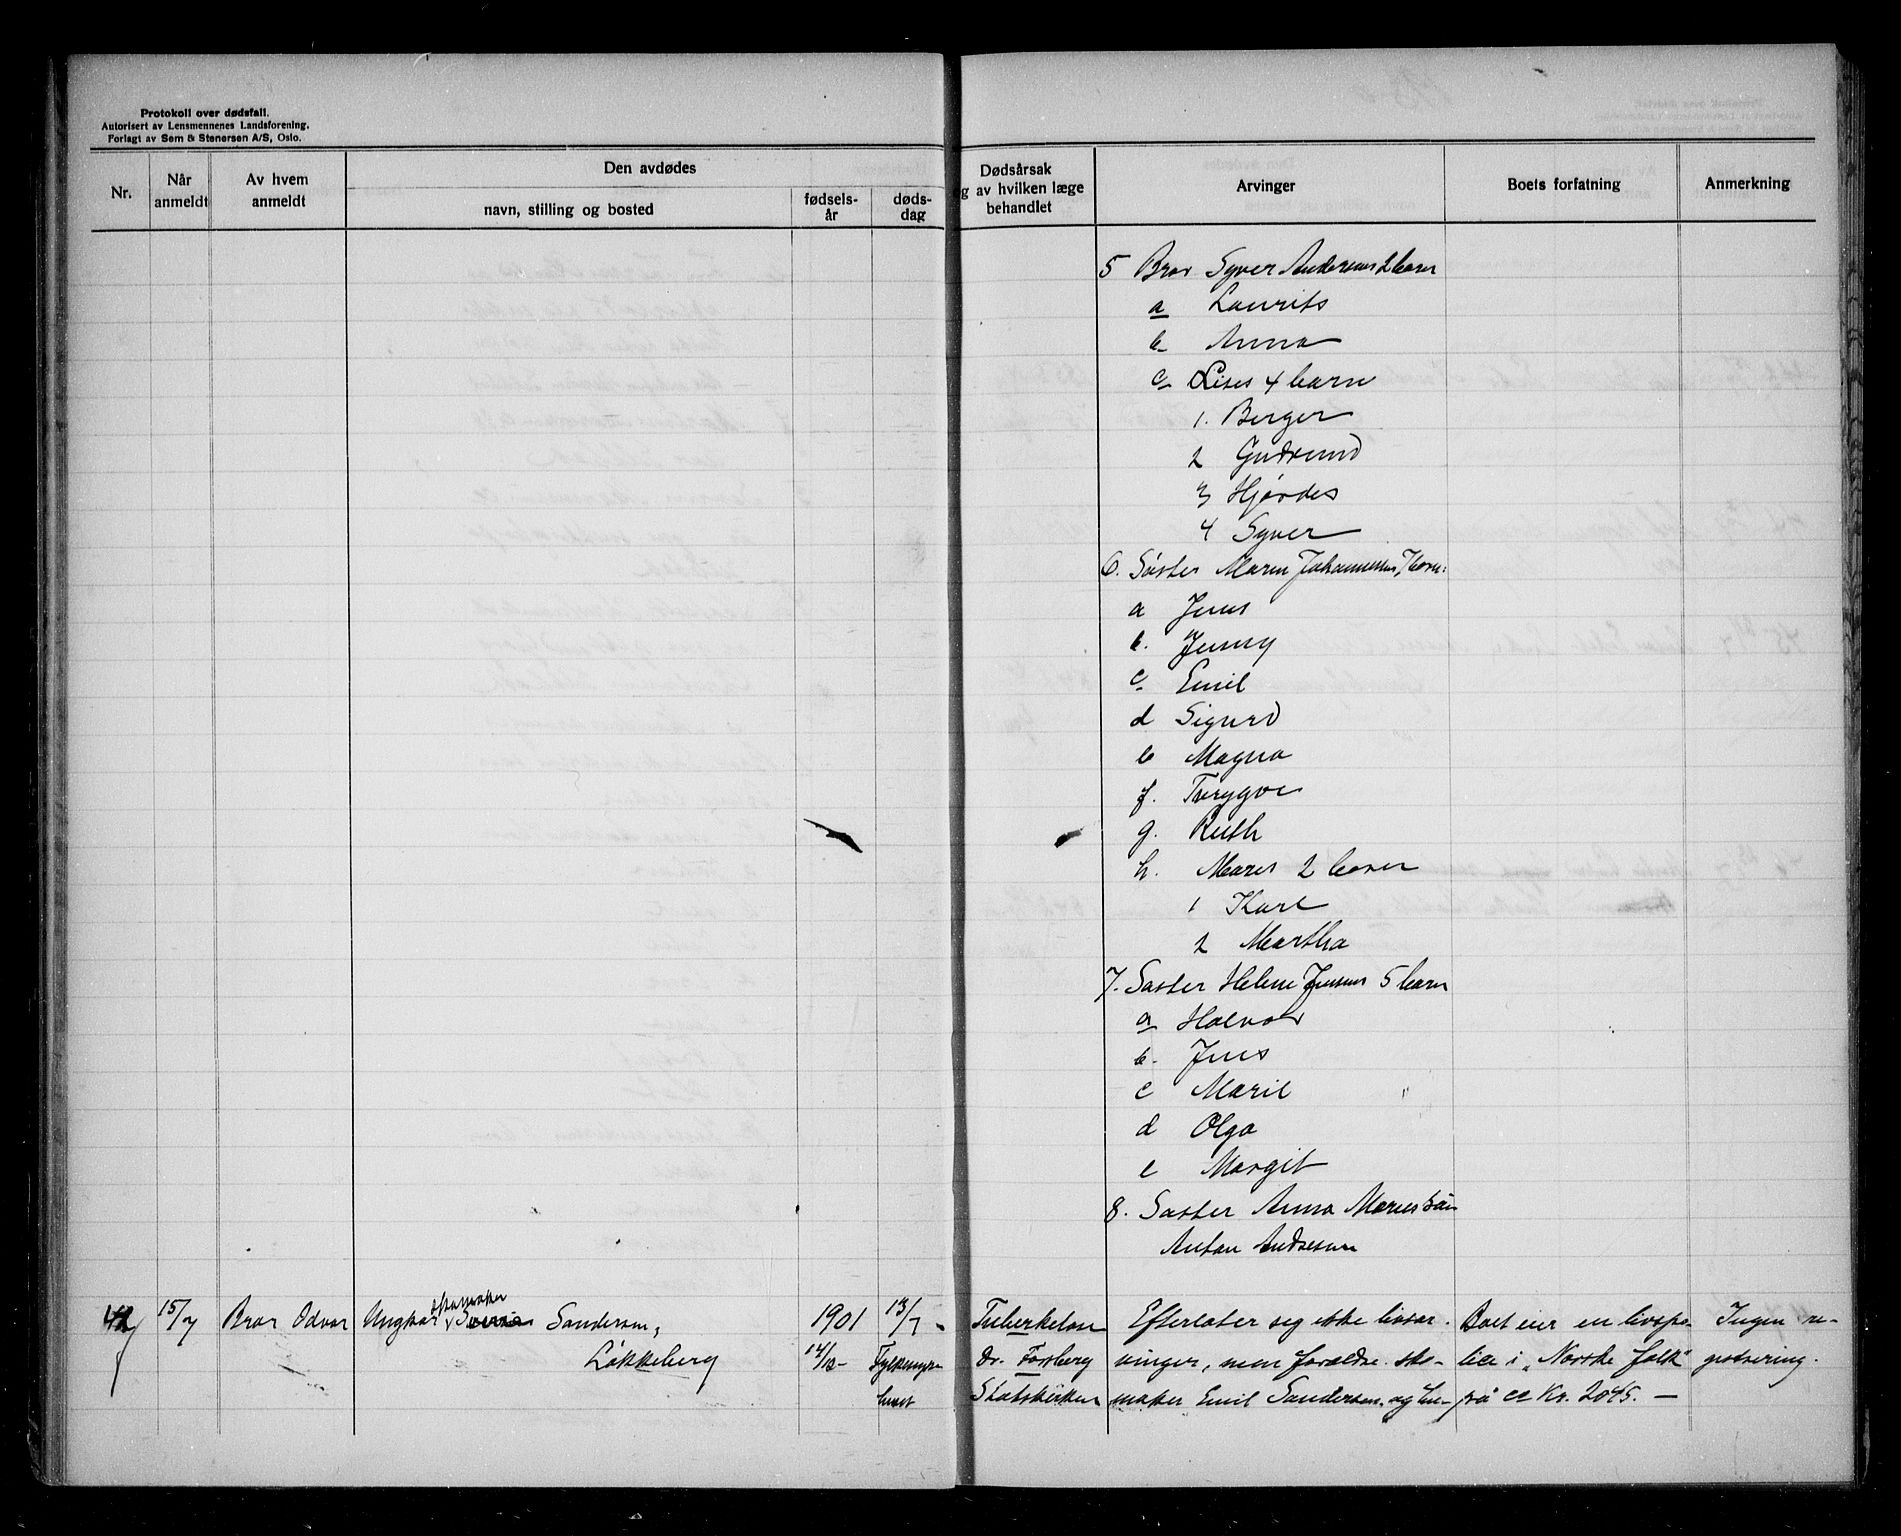 Protokoll over dødsfall.
Autorisert av Lensmennenes Landsforening.
Forlagt av Sem & Stenersen A/S, Oslo.
Nr.
Når anmeldt
Av hvem anmeldt
Den avdødes
navn, stilling og bosted
fødsels-år
døds-dag
Dødsårsak
og av hvilken læge
behandlet
Arvinger
Boets forfatning
Anmerkning
5 Bror Syver Andersens 2 barn
a Laurits
b Anna
c Lises 4 barn
1. Berger
2 Gudrund
3 Hjørdes
4 Syver
6. Søster Maren Johannesens, barn:
a Jens
b. Jenny
c Emil
d Sigurd
e Magna
f. Trygve
g. Ruth
h. Mares 2 barn
1 Karl
2 Martha
7. Søster Helene Jensens 5 barn
a Halvor
b. Jens
c Maril
d Olga
e Margit
8. Søster Anna Maries søn
Anton Andresen
42
15/7
Bror Odvar
Ungkar Sanderson,
Løkkeberg
1901
14/12-
13/7 -
Fylkessyke-
huset
Tuberkelose
dr. Forsberg
Efterlater sig ikke livsar-
vinger, men foreldre sko-
maker Emil Sanderson og hu-
Boet eier en livspo-
lice i "Norske folk"
på ca Kr. 2045. —
Ingen re-
gistrering.